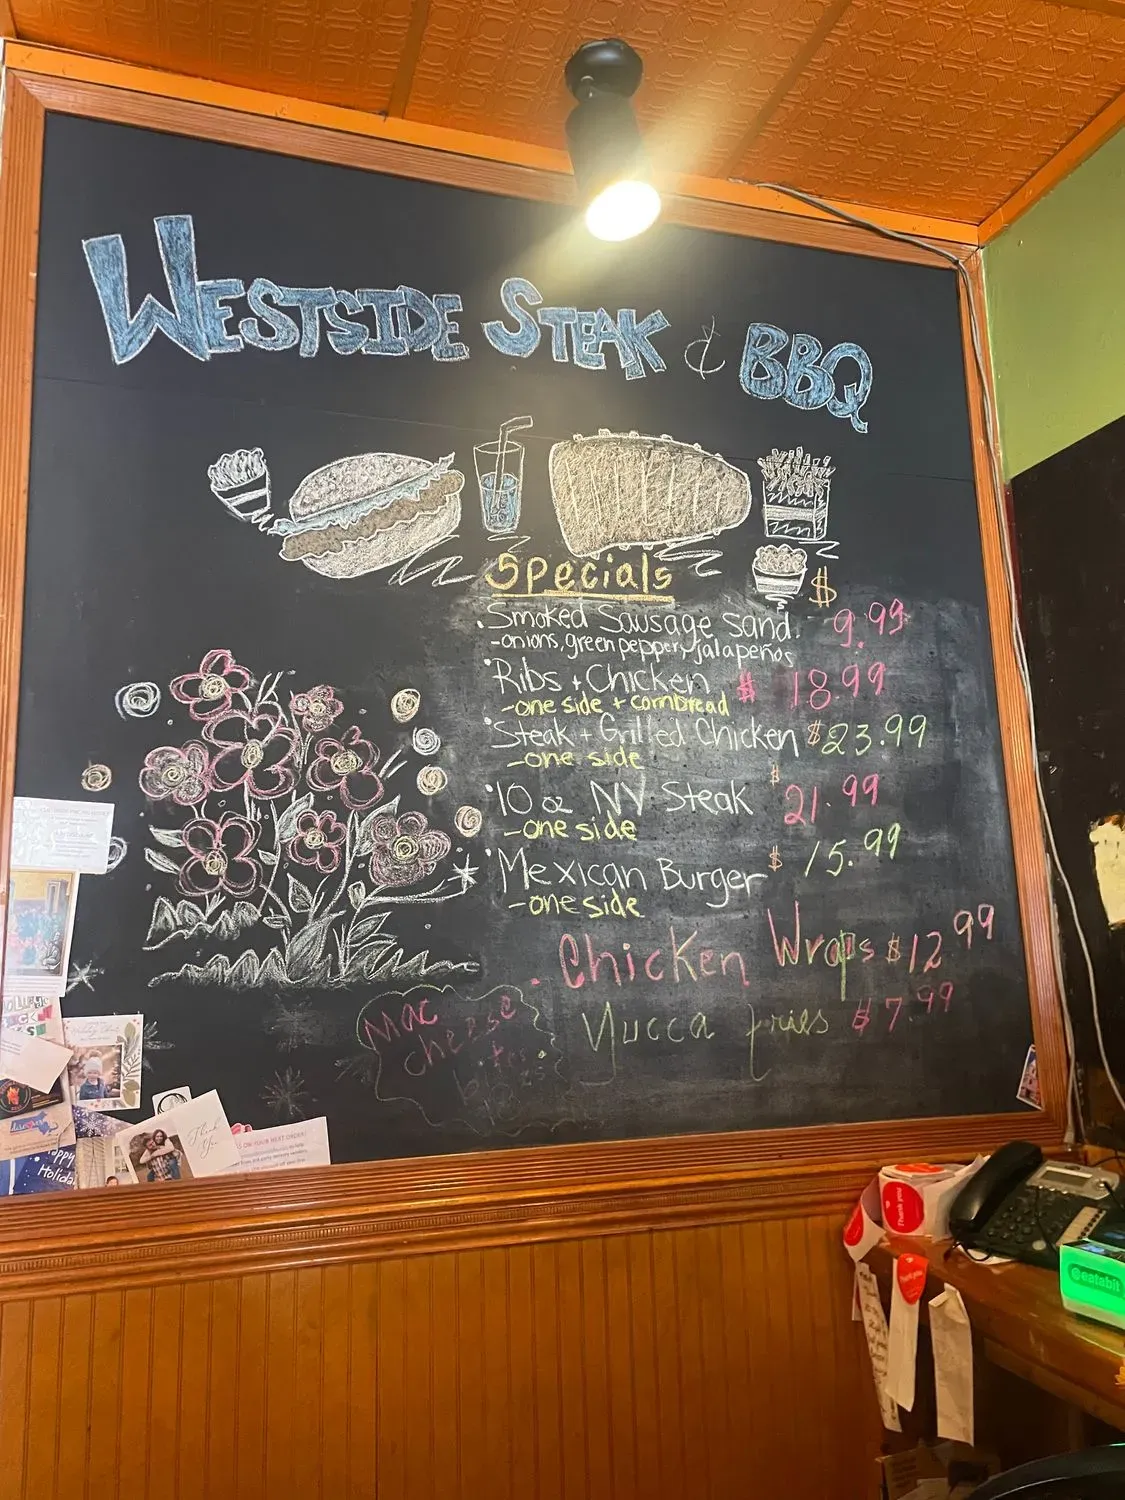 WESTSIDE STEAK & BBQ
Specials $
Smoked Sausage Sand. 9.99
-onions, green pepper, jalapeños
Ribs + Chicken $ 18.99
-one side + cornbread
Steak + Grilled Chicken $23.99
-one side
10 oz NY Steak $ 21.99
-one side
Mexican Burger $ 15.99
-one side
Chicken Wraps $12.99
Yucca fries $7.99
Mac
cheese
bites
Thank
You
ON YOUR NEXT ORDER!
Happy
Holida
Thank you
@eatabit